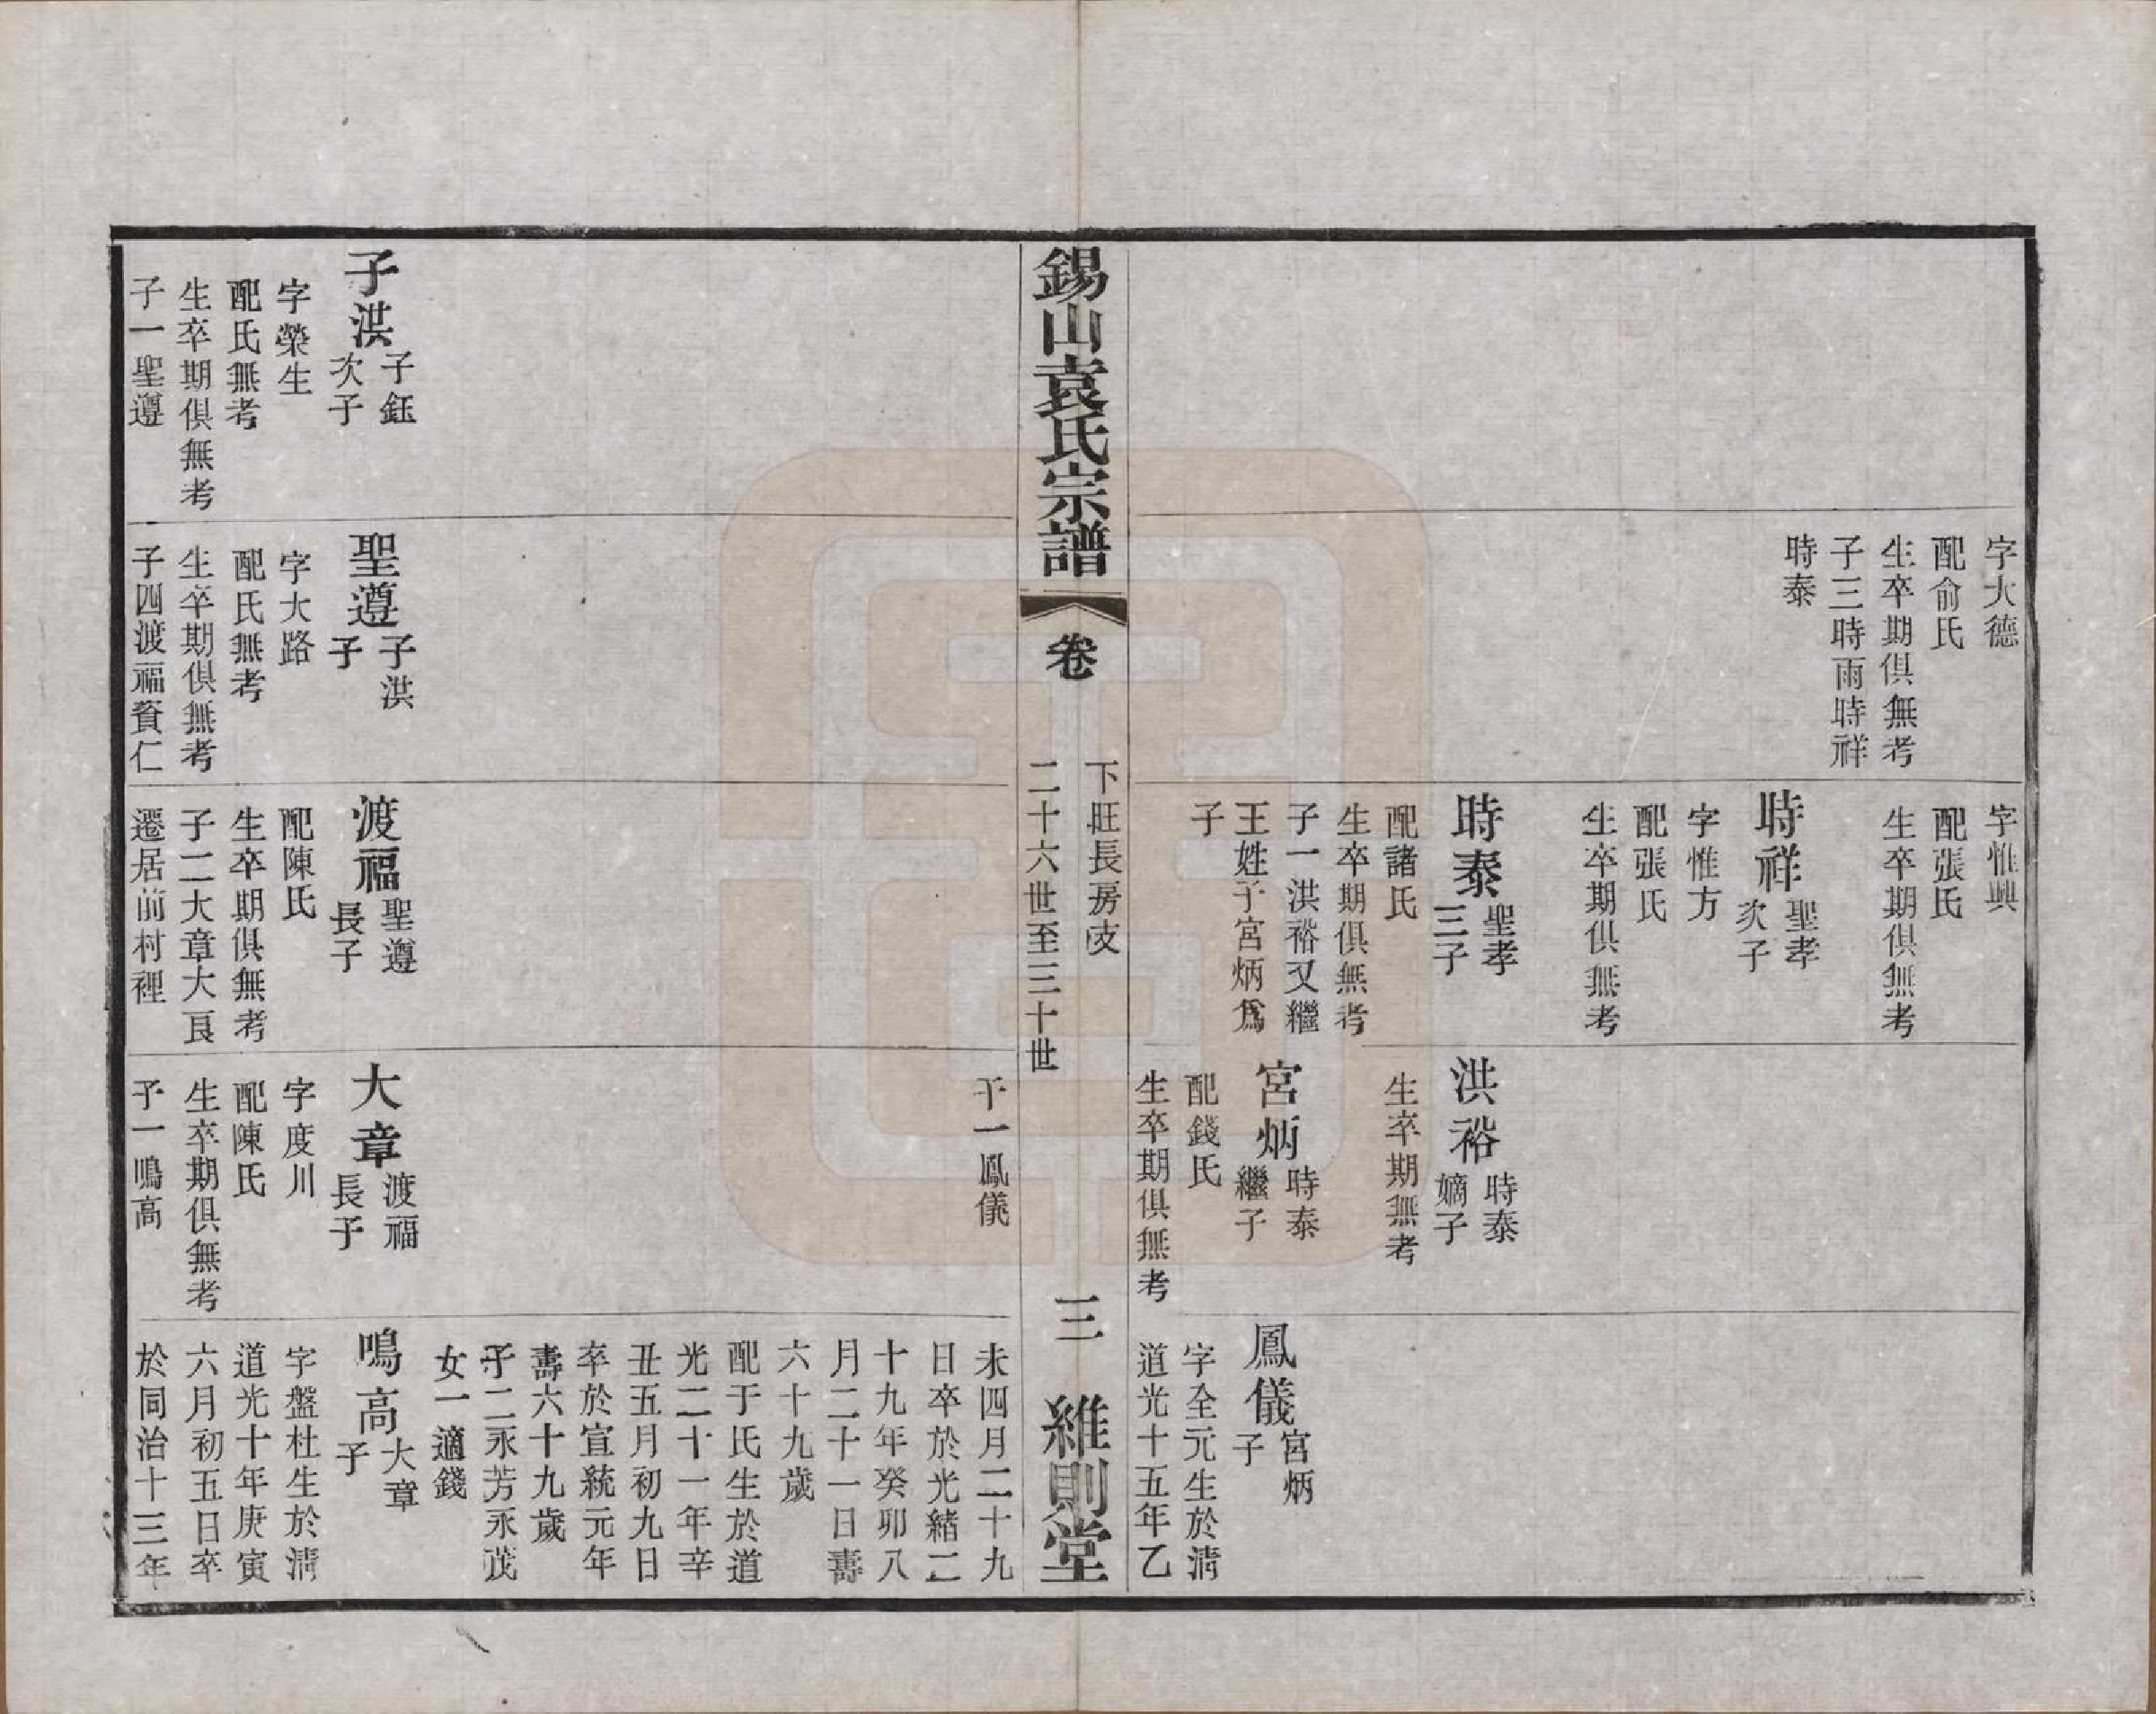 字大德
配俞氏
生卒期俱無考
子三時雨時祥
時泰
字惟興
配張氏
生卒期俱無考
時祥
聖孝
次子
字惟方
配張氏
生卒期俱無考
時泰
聖孝
三子
配諸氏
生卒期俱無考
子一洪裕又繼
王姓子宮炳爲
子
洪裕
時泰
嫡子
生卒期無考
宮炳
時泰
繼子
配錢氏
生卒期俱無考
鳳儀
宮炳
子
字全元生於淸
道光十五年乙
錫山袁氏宗譜
卷
下旺長房支
二十六世至三十世
三
維則堂
子一鳳儀
未四月二十九
日卒於光緒二
十九年癸卯八
月二十一日壽
六十九歲
配于氏生於道
光二十一年辛
丑五月初九日
卒於宣統元年
壽六十九歲
子二永芳永茂
女一適錢
子洪
子鈺
次子
字榮生
配氏無考
生卒期俱無考
子一聖遵
聖遵
子洪
子
字大路
配氏無考
生卒期俱無考
子四渡福資仁
渡福
聖遵
長子
配陳氏
生卒期俱無考
子二大章大良
遷居前村裡
大章
渡福
長子
字度川
配陳氏
生卒期俱無考
子一鳴高
鳴高
大章
子
字盤杜生於淸
道光十年庚寅
六月初五日卒
於同治十三年